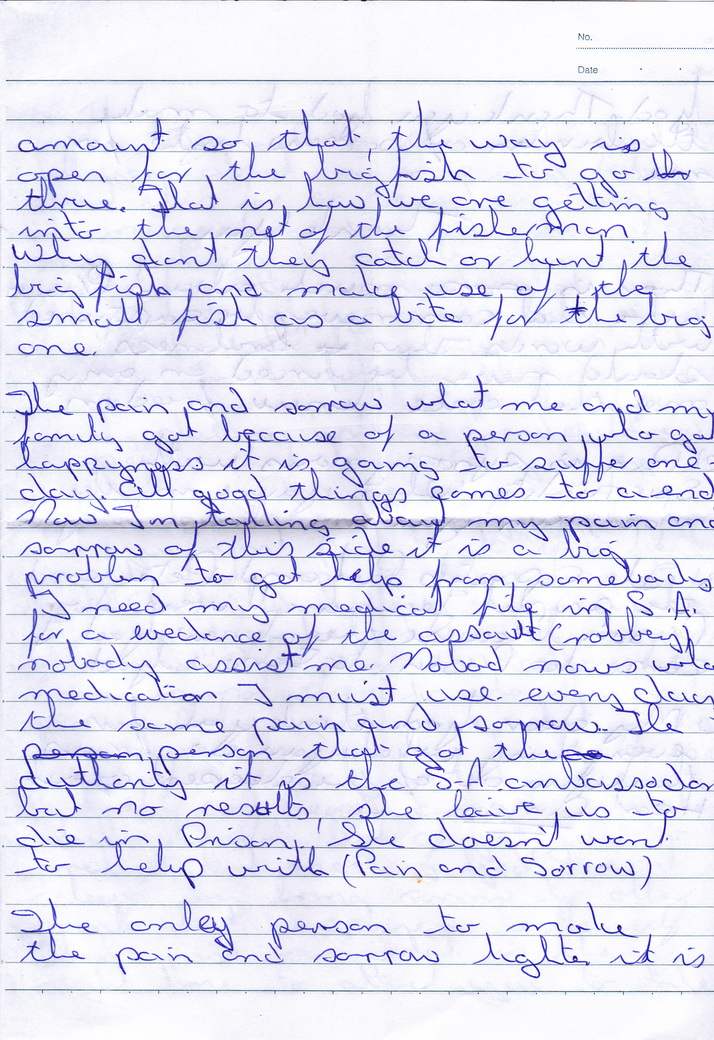 No.
Date
amount so, that, the way is
open for the big fish to go
three. That is how we are getting
into the net of the fisherman.
Why don't they catch or hunt the
big fish and make use of the
small fish as a bite for the big
one.
The pain and sorrow what me and my
family got because of a person who got
happyness it is going to suffer one
day. All good things comes to a end
Now I'm talking about my pain and
sorrow of this side it is a big
problem to get help from somebody
I need my medical file in S.A.
for a evedence of the assault (robbery)
nobody assist me. Nobod nows wha
medication I must use. every day
the same pain and sorrow. The
person person that got the
authority it is the S.A ambassador
but no results, she leave us to
die in Prison, She doesn't want
to help with (Pain and Sorrow)
The onley person to make
the pain and sorrow lighter it is